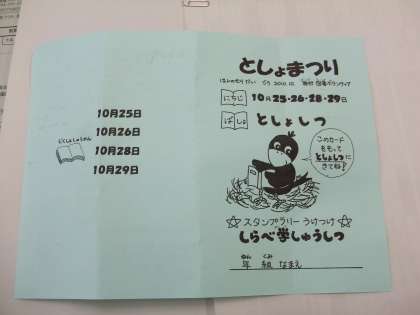 10月25日
10月26日
10月28日
10月29日
としょまつり
にちじ 10月25・26・28・29日
ばしょ としょしつ
このカード
をもって
としょしつに
きてね!
☆スタンプラリー うけつけ☆
しらべ学しゅうしつ
ねん くみ
年 組 なまえ